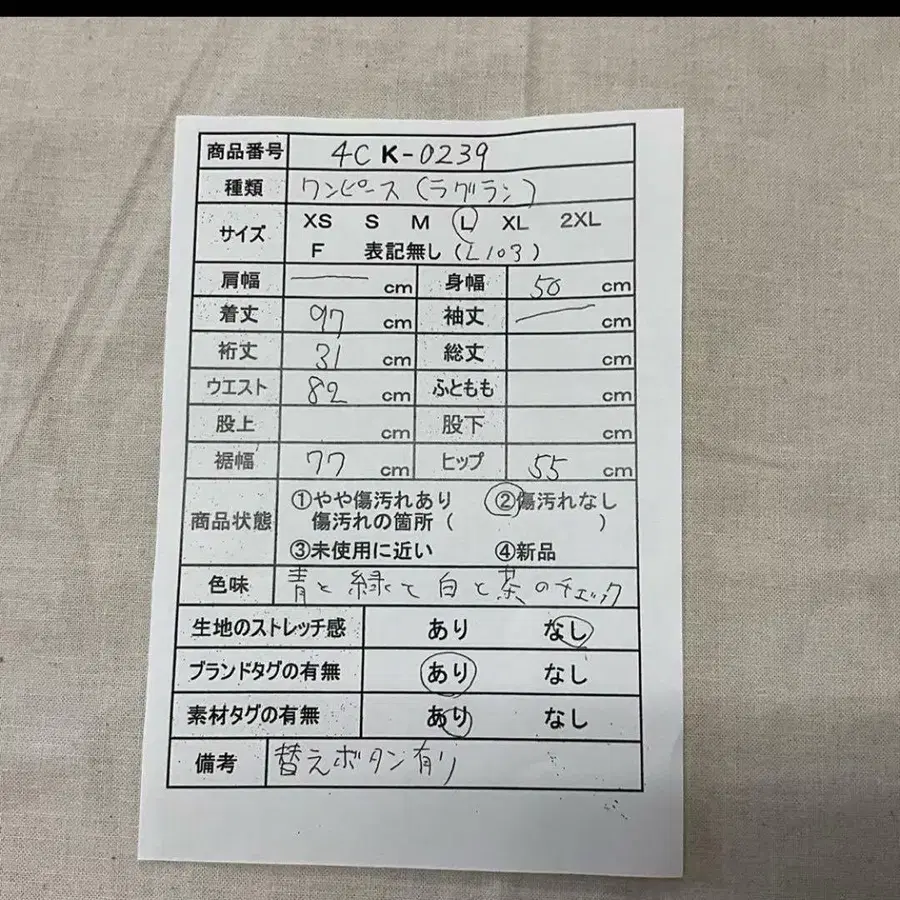 商品番号 4C K-0239
種類 ワンピース(ラグラン)
サイズ XS S M L XL 2XL
F 表記無し(L103)
肩幅 cm 身幅 50 cm
着丈 97 cm 袖丈 cm
裄丈 31 cm 総丈 cm
ウエスト 82 cm ふともも cm
股上 cm 股下 cm
裾幅 77 cm ヒップ 55 cm
商品状態 ①やや傷汚れあり ②傷汚れなし
傷汚れの箇所( )
③未使用に近い ④新品
色味 青と緑と白と茶のチェック
生地のストレッチ感 あり なし
ブランドタグの有無 あり なし
素材タグの有無 あり なし
備考 替えボタン有り